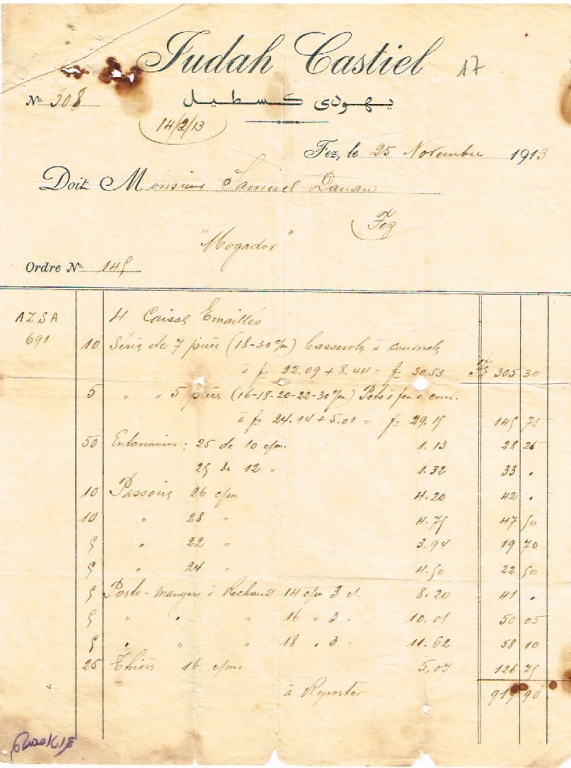 Judah Castiel
17
يهودى كسطيل
No. 308
14/2/13
Fez, le 25 Novembre 1913
Doit Monsieur Samuel Danan
Fez
"Mogador"
Ordre No. 145
AZSA
691
4 Caisses Emaillés
10 Série de 7 pièces (18-30 c/m) Casserole à couvercle
à f 22.09 + 8.44 = f 30.53 305 30
5 " " 5 pièces (16-18-20-22-30 c/m) Pots à feu à couv.
à f 24.14 + 5.01 = f 29.15 145 75
50 Entonnoirs : 25 de 10 c/m. 1.13 28 25
25 de 12 " 1.32 33 "
10 Passoirs 26 c/m 4.20 42 "
10 " 28 " 4.75 47 50
5 " 22 " 3.94 19 70
5 " 24 " 4.50 22 50
5 Porte-manger à Rechaud 14 c/m 3 8.20 41 "
5 " " " 16 " 3 " 10.01 50 05
5 " " " 18 " 3 " 11.62 58 10
25 16 c/m 5.07 126 75
à Reporter 919 90